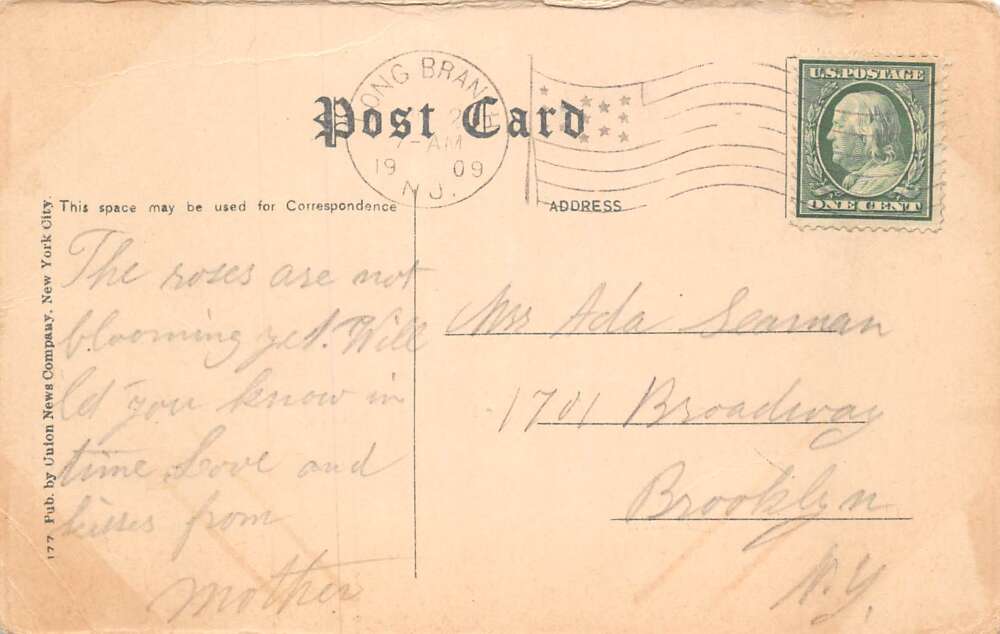 LONG BRANCH
2
7-AM
19 09
N.J.
U.S. POSTAGE
ONE CENT
Post Card
This space may be used for Correspondence
ADDRESS
177 Pub. by Union News Company, New York City.
The roses are not
blooming yet. Will
let you know in
time Love and
kisses from
Mother
Mrs Ada Seaman
1701 Broadway
Brooklyn
N.Y.